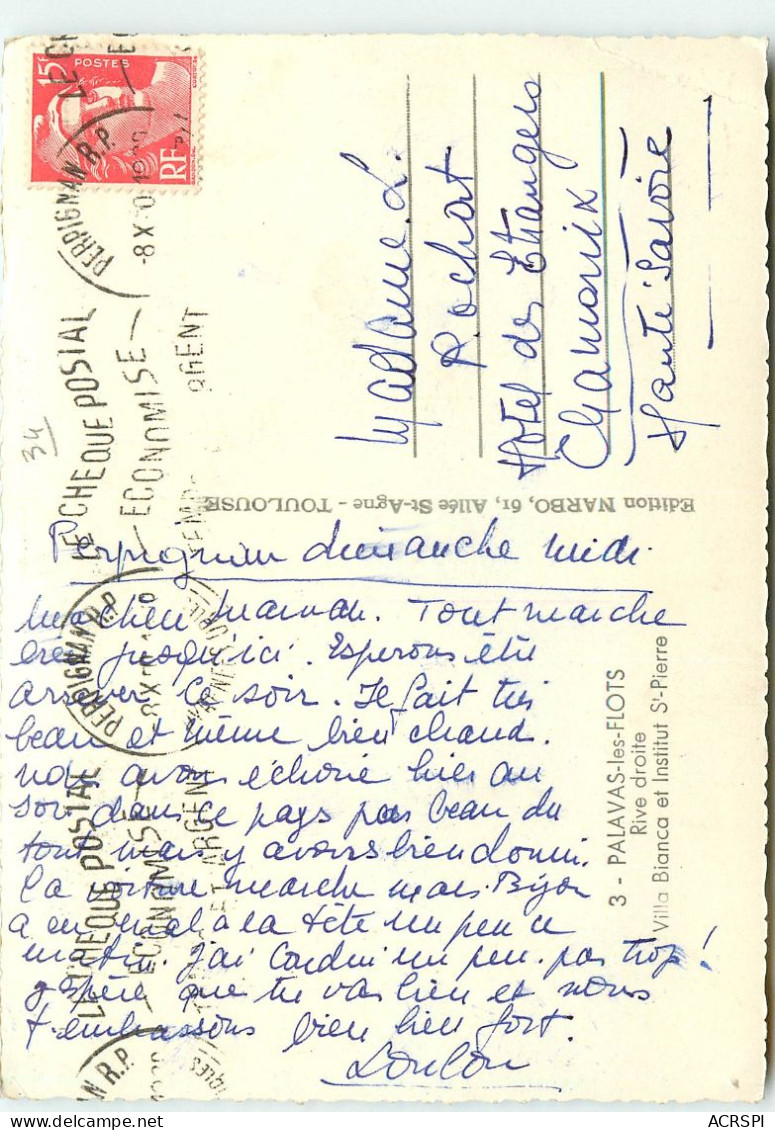 15F
POSTES
RF
PERPIGNAN R.P.
8 X
LE CHEQUE POSTAL
ECONOMISE
34
Madame L.
Rochat
Hotel des Etrangers
Chamonix
Haute Savoie
Edition NARBO, 61, Allée St-Agne - TOULOUSE
3 - PALAVAS-les-FLOTS
Rive droite
Villa Bianca et Institut St-Pierre
Perpignan dimanche midi
Ma chere Maman. Tout marche
bien jusqu'ici. Esperons être
arriver ce soir. Il fait très
beau et même bien chaud.
nous avons échoué hier au
soir dans ce pays pas beau du
tout mais y avons bien dormi.
La voiture marche mais Bijou
a eu mal à la tête un peu ce
matin. j'ai conduit un peu. pas trop!
J'espère que tu vas bien et nous
t'embrassons bien bien fort.
Loulou
PERPIGNAN R.P.
8 X
LE CHEQUE POSTAL
ECONOMISE
ET ARGENT
ACRSPI